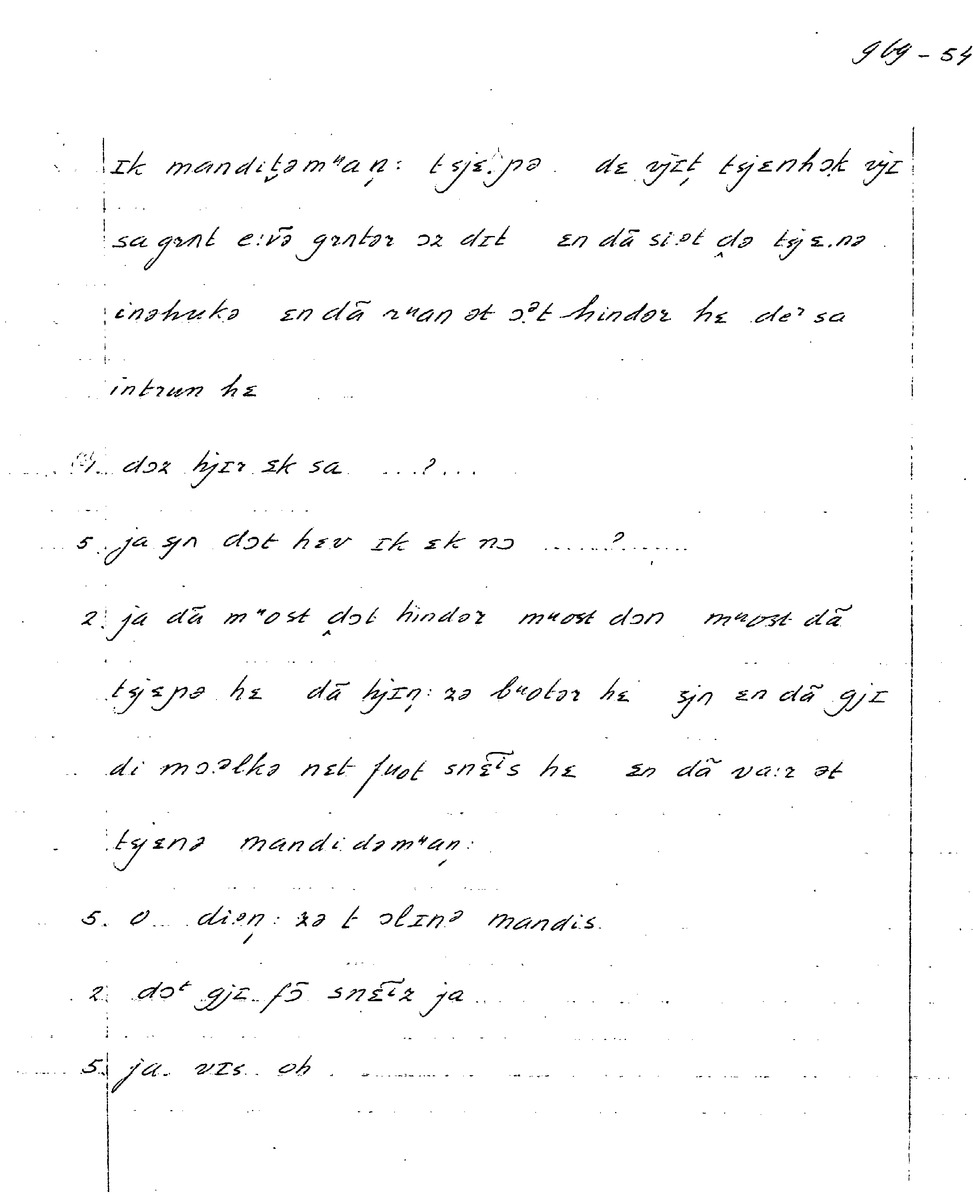 gbg - 54
ɪk mandit̬əmᵘaṇ: tsjɛ.pə. dɛ vjɪṭ tsjɛnhɔk vjɪ
sa grʌt e:və̃ grʌtər ɔz dɪt ɛn dã si.ət d̬ə tsjɛ.nə.
inəhukə ɛn dã rᵘan ət ɔ.ᵊt hindər hɛ deʳ sa
intrun hɛ
dɔz hjɪr ɛk sa ...?...
5. ja sjn dɔt hɛv ɪk ɛk nɔ ......?......
2. ja dã mᵘost d̬ɔt hindər mᵘost dɔn mᵘost dã
tsjɛpə hɛ dã hjɪṇ:zə bᵘotər hɛ sjn ɛn dã gjɪ
di mɔ.ᵊlkə nɛt fuot snɛ͂ɪs hɛ ɛn dã va:r ət
tsjɛnə mandidəmᵘaṇ:
5. o di.əṇ: zə t ɔlɪnə mandis.
2. dɔᵗ gjɪ fɔ̃ snɛ͂ɪz ja
5. ja. vɪs. oh.